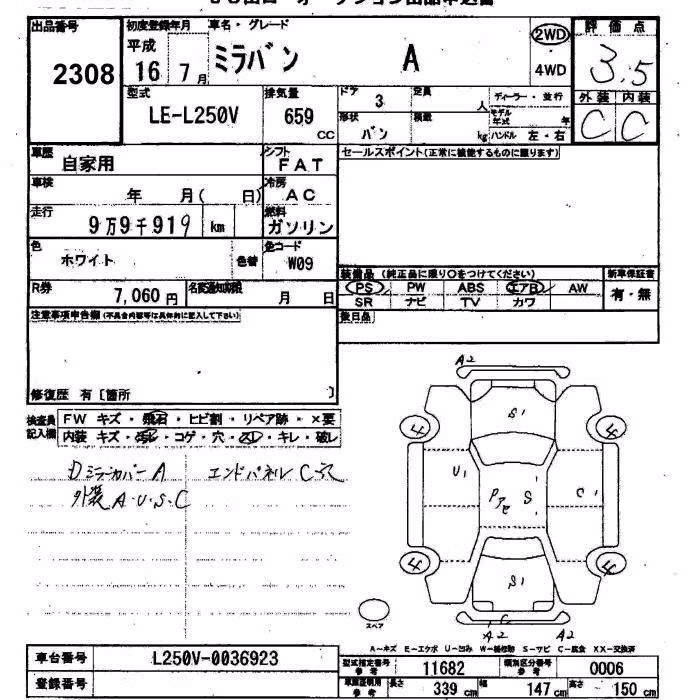 出品番号 初度登録年月 車名・グレード 評価点
2308 平成 16 7月 ミラバン A 2WD 4WD 3.5
型式 排気量 ドア 定員 ディーラー・並行 外装 内装
LE-L250V 659 CC 3 人 モデル年式 年 C C
形状 バン 積載 kg ハンドル 左・右
車歴 自家用 シフト FAT セールスポイント(正常に機能するものに限ります)
車検 年 月( 日) 冷房 AC
走行 9万9千919 km 燃料 ガソリン
色 ホワイト 色替 色コード W09
装備品 (純正品に限り○をつけてください) 新車保証書
R券 7,060円 名変通知期限 月 日
PS PW ABS エアB AW 有・無
SR ナビ TV カワ
注意事項申告欄(不具合内容等は具体的に記入して下さい) 後日品
修復歴 有〔箇所 〕
検査員記入欄 FW キズ・飛石・ヒビ割・リペア跡・×要
内装 キズ・汚れ・コゲ・穴・スレ・キレ・破レ
Dミラーカバー A エンドパネル C 穴
外装 A・U・S・C
A2
S1
4 4
U1 Pアセ S C1
4 4
S1
スペア
C
A2 A2
A～キズ E～エクボ U～凹み W～補修跡 S～サビ C～腐食 XX～交換済
車台番号 L250V-0036923 型式指定番号 参考 11682 類別区分番号 参考 0006
登録番号 車庫証明用 参考 長さ 339 cm 幅 147 cm 高さ 150 cm